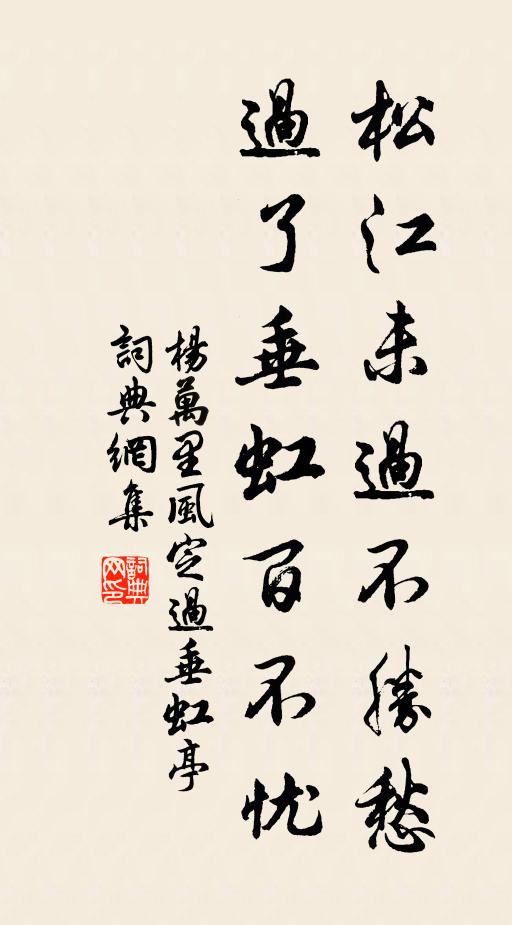 松江未過不勝愁
過了垂虹百不忧
楊萬里風定過垂虹亭
詞典網集
詞典网印